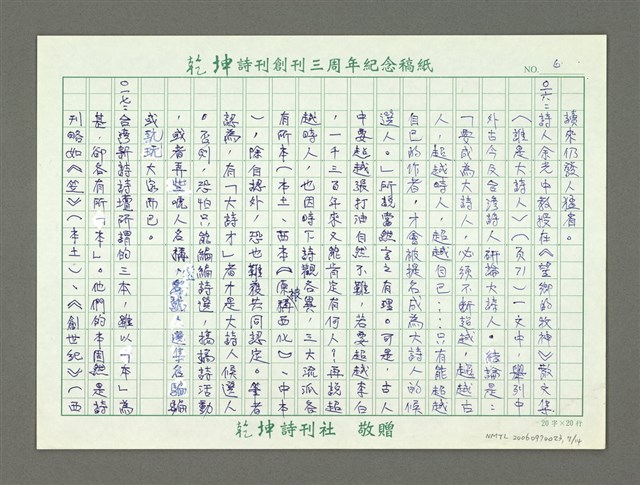 乾坤詩刊創刊三周年紀念稿紙
NO. 6
讀來仍發人猛省。
○六、詩人余光中教授在《望鄉的牧神》散文集
〈誰是大詩人〉(頁71)一文中,舉列中
外古今及台灣詩人研論大詩人。結論是:
「要成為大詩人,必須不斷超越,超越古
人,超越時人,超越自己……只有能超越
自己的作者,才會被提名成為大詩人的候
選人。」所提當然言之有理。可是,古人
中要超越張打油自然不難,若要超越李白
,一千三百年來又能肯定有何人?再說超
越時人,也因時下詩觀各異,三大流派各
有所本(本土、西本(原稱西化)、中本
),除自提外,恐也難獲共同認定。筆者
認為,有「大詩才」者才是大詩人候選人
。否則,恐怕只能編編詩選,搞搞詩活動
,或者弄些唬人名講、選集名騙騙
或玩玩大家而已。
○七、台灣新詩詩壇所謂的三本,雖以「本」為
甚,卻各有所「本」。他們的本周然是詩
刊略如《笠》(本土)、《創世紀》(西
20字×20行
乾坤詩刊社 敬贈
NMTL 20060970023, 7/14